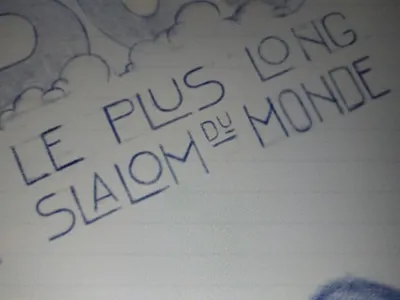 LE PLUS LONG
SLALOM DU MONDE